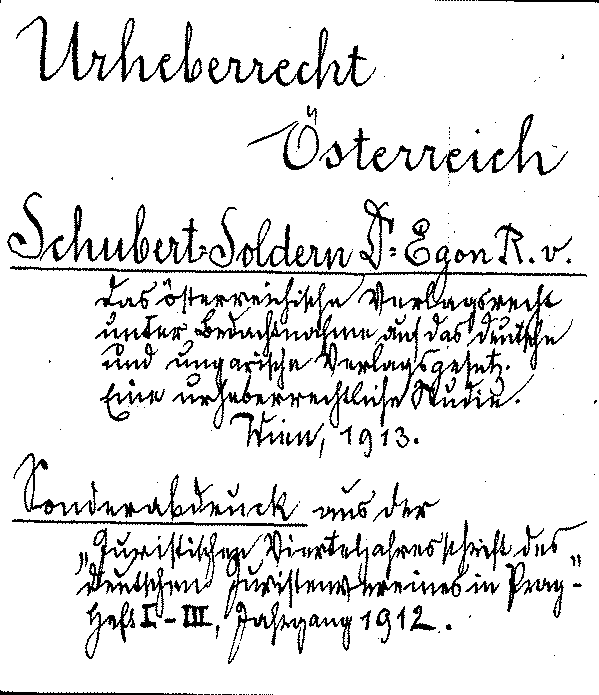 Urheberrecht
Österreich
Schubert-Soldern Dr. Egon R. v.
Das österreichische Verlagsrecht
unter Bedachtnahme auf das deutsche
und ungarische Verlagsgesetz.
Eine urheberrechtliche Studie.
Wien, 1913.
Sonderabdruck aus der
„Juristischen Vierteljahresschrift des
Deutschen Juristenvereines in Prag"-
Heft I-III, Jahrgang 1912.